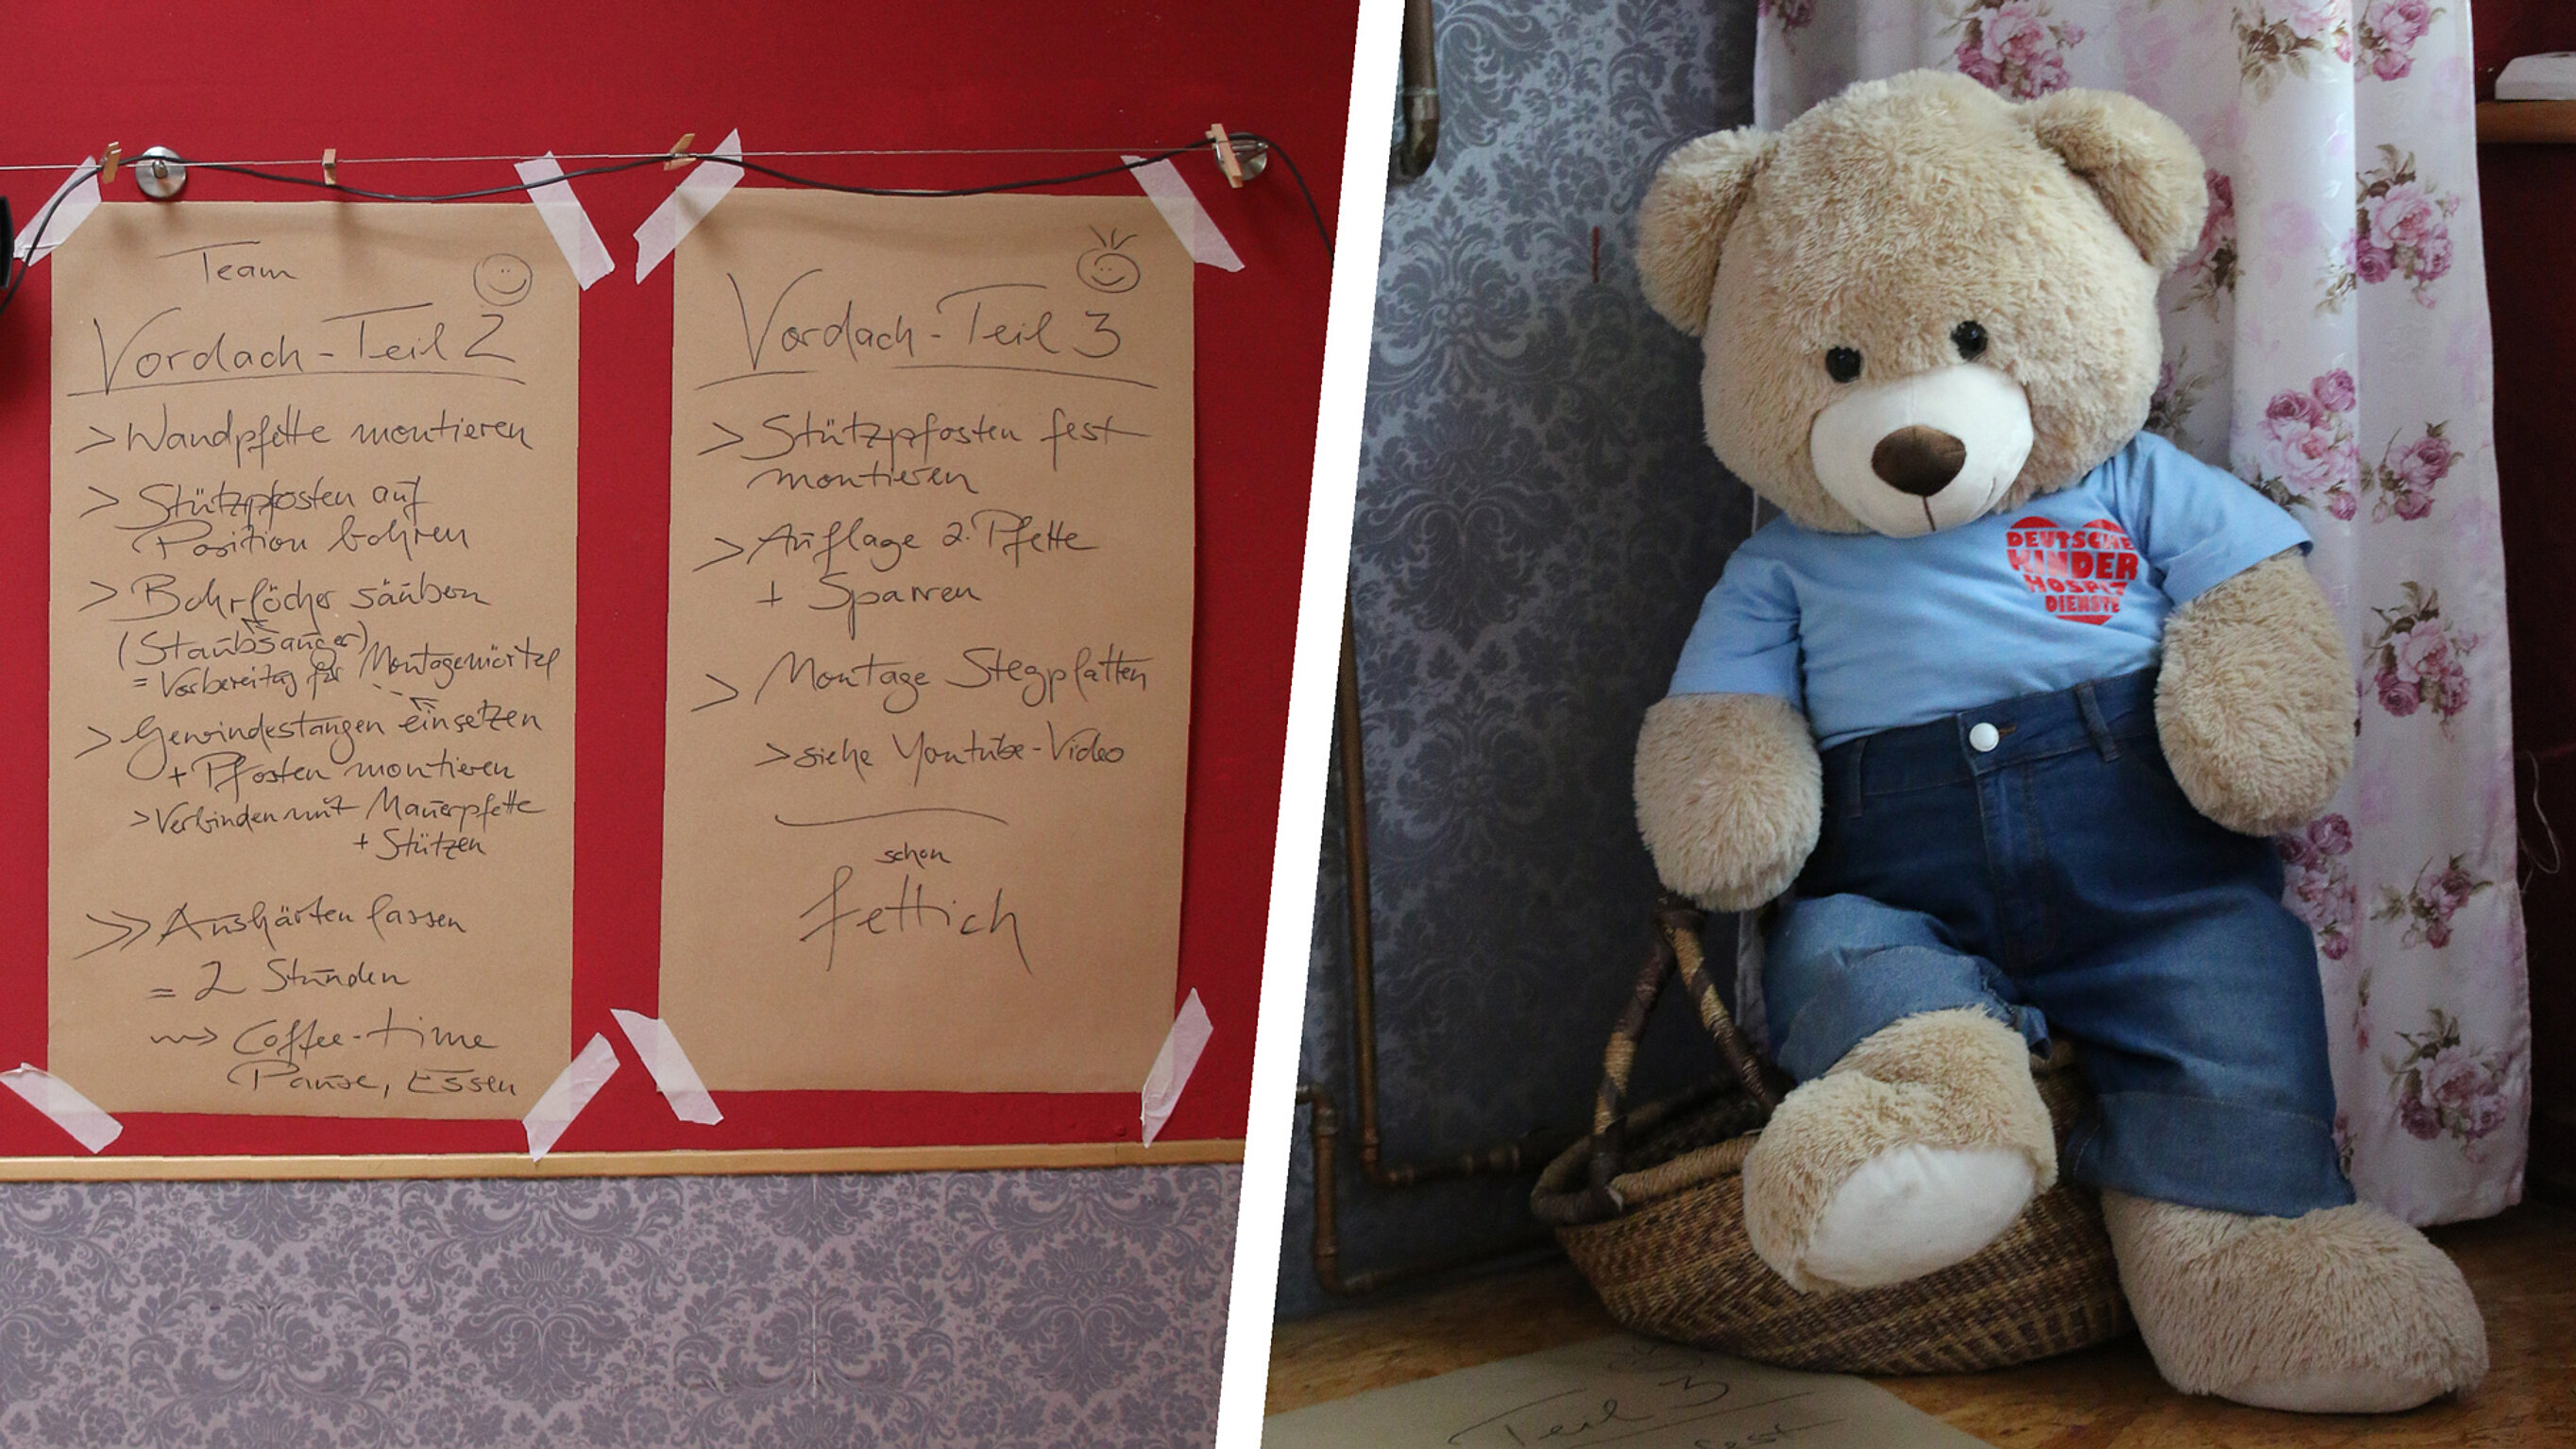 Team
Vordach-Teil 2
> Wandpfette montieren
> Stützpfosten auf
Position bohren
> Bohrlöcher säubern
(Staubsauger)
= Vorbereitg für Montagemörtel
> Gewindestangen einsetzen
+ Pfosten montieren
> Verbinden mit Mauerpfette
+ Stützen
>> Aushärten lassen
= 2 Stunden
Coffee-time
Pause, Essen
Vordach-Teil 3
> Stützpfosten fest
montieren
> Auflage 2. Pfette
+ Sparren
> Montage Stegplatten
> siehe Youtube-Video
schon
fettich
DEUTSCHE
KINDER
HOSPIZ
DIENSTE
Teil 3
fest